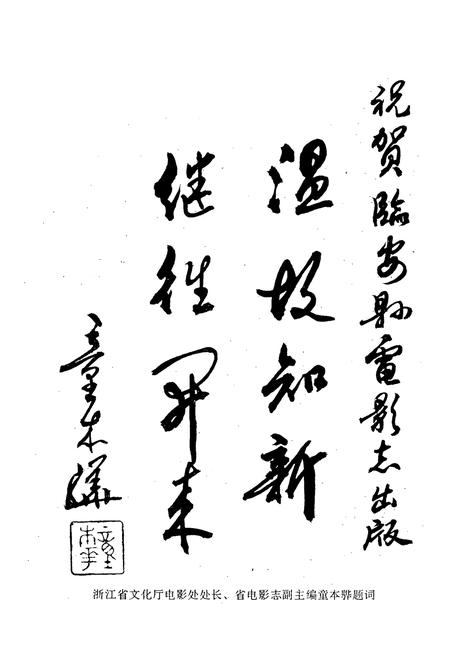 祝贺臨安縣電影志出版
温故知新
继往开来
童本骅
浙江省文化厅电影处处长、省电影志副主编童本骅题词